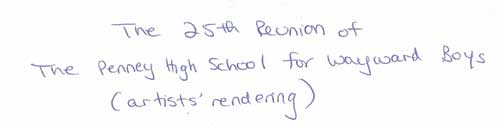 The 25th Reunion of
The Penney High School for Wayward Boys
(artists' rendering)